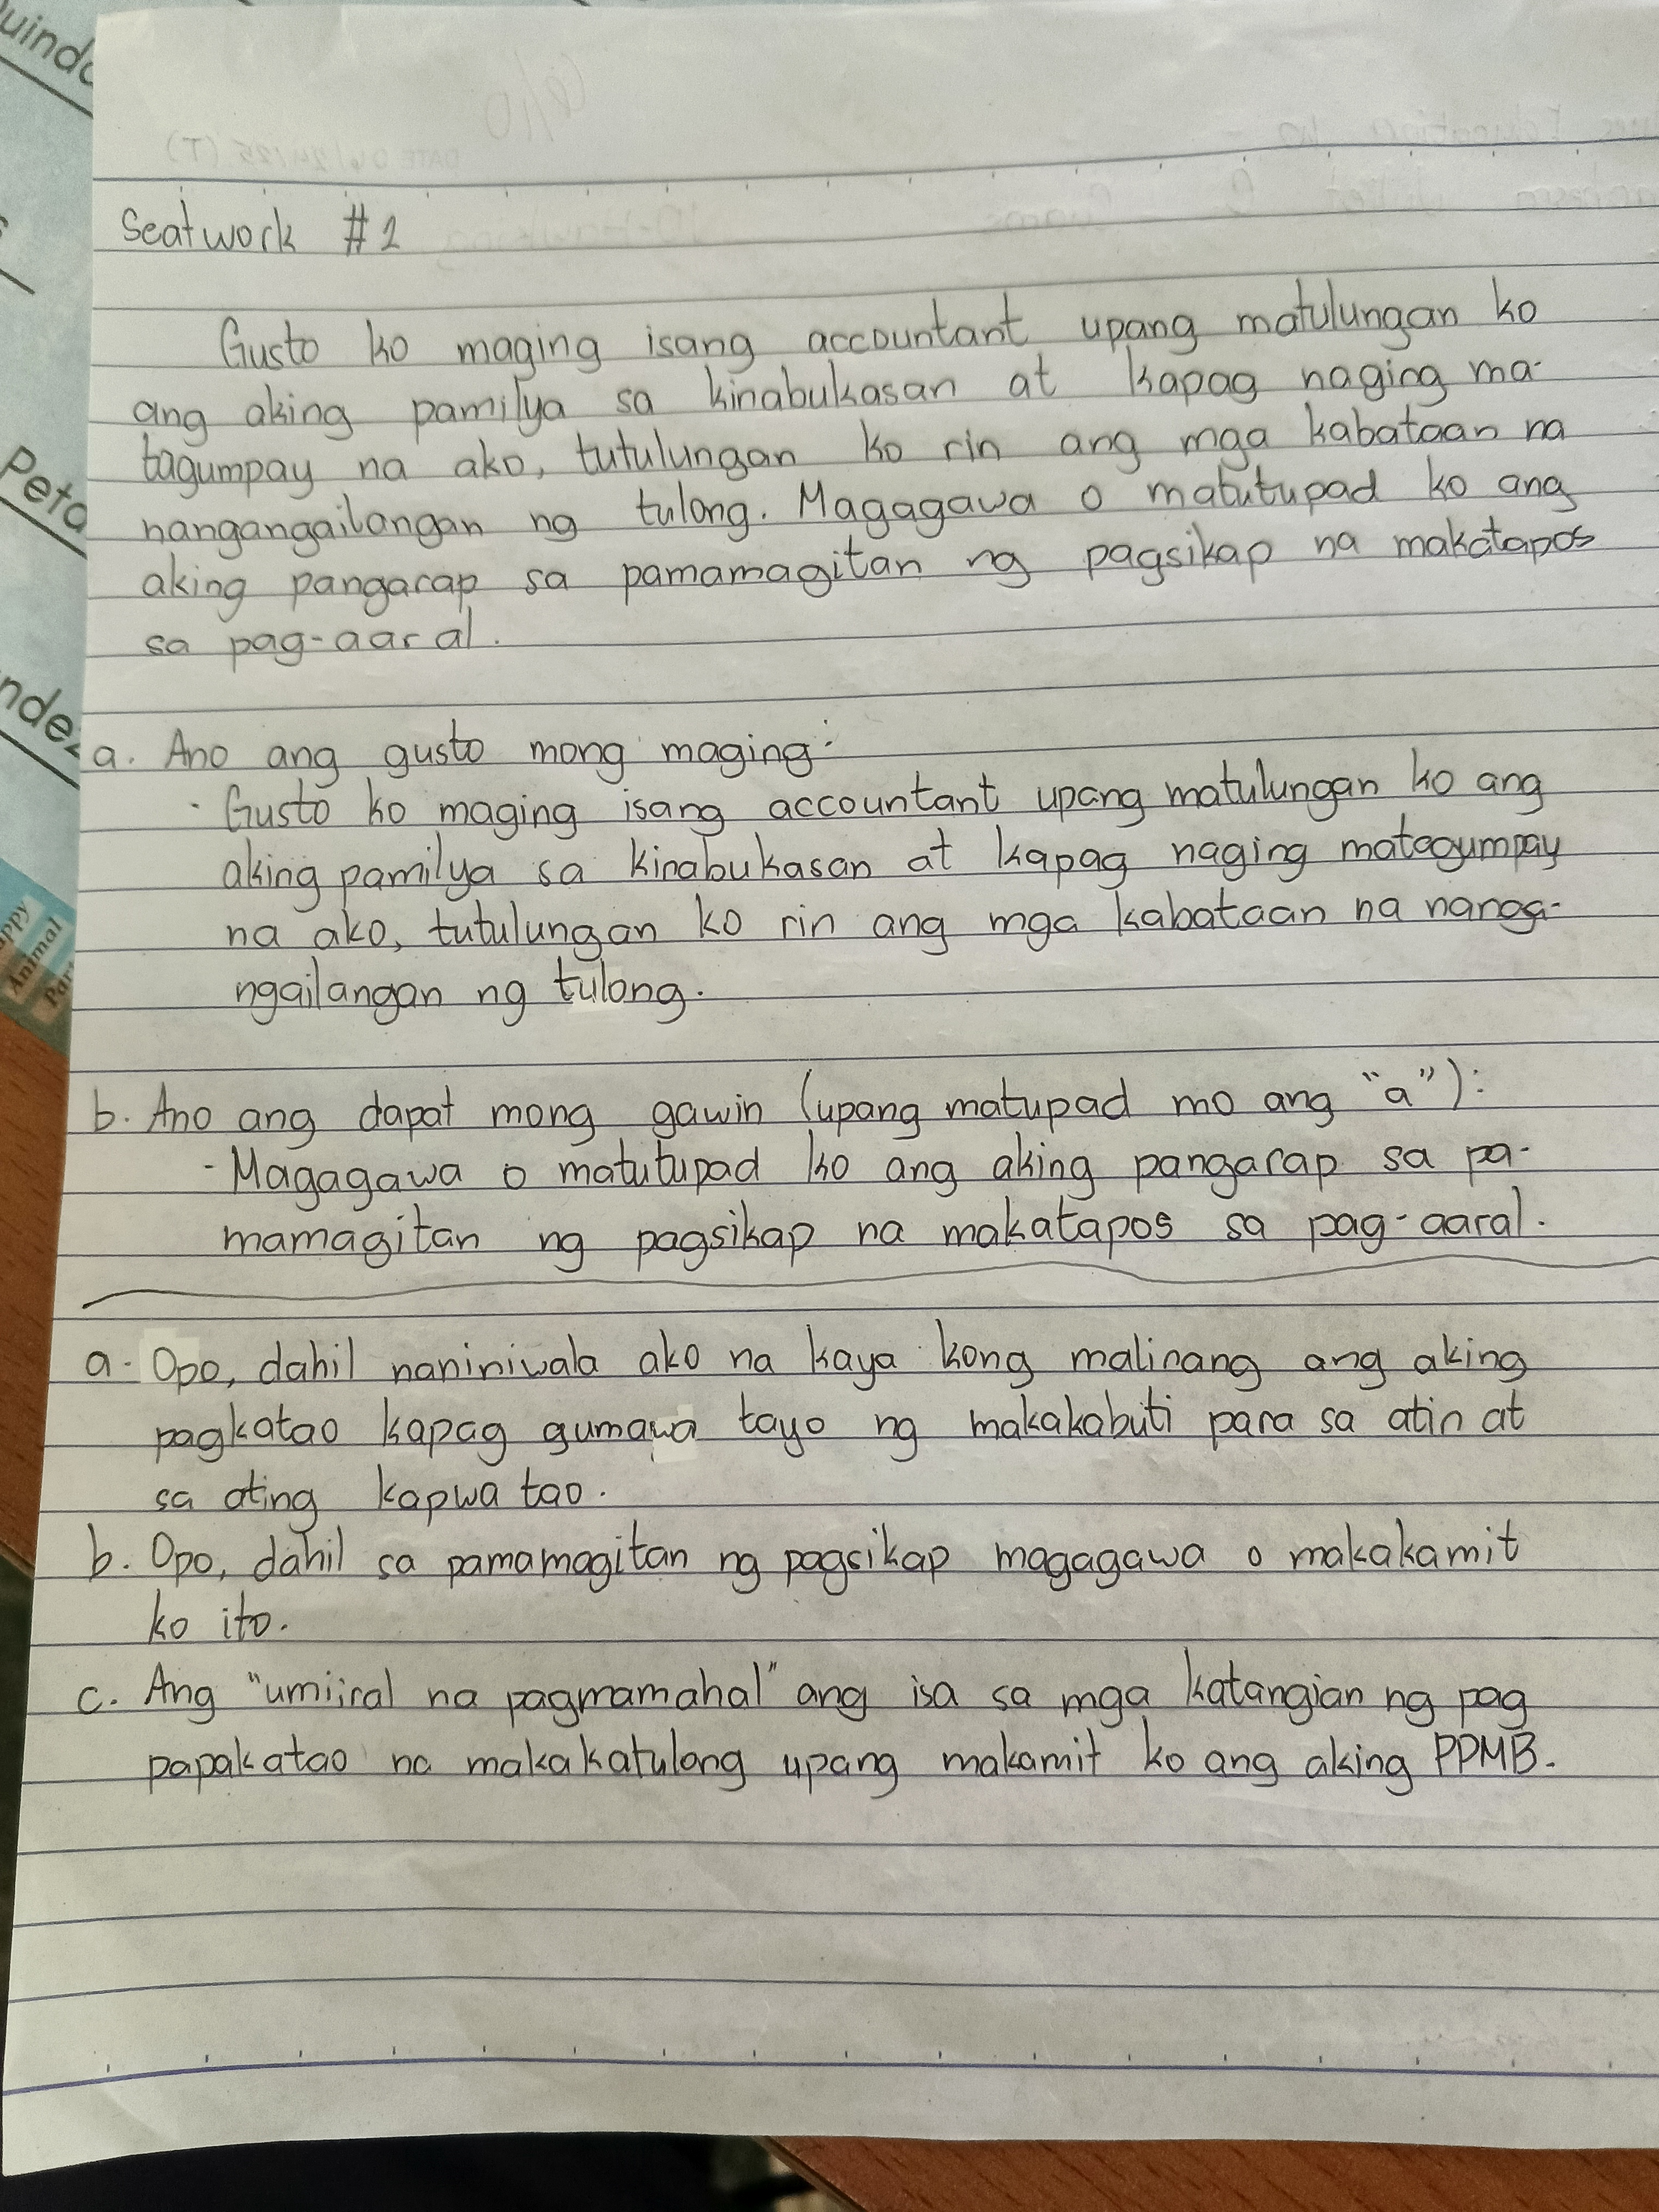 Seatwork #2
Gusto ko maging isang accountant upang matulungan ko
ang aking pamilya sa kinabukasan at kapag naging ma-
tagumpay na ako, tutulungan ko rin ang mga kabataan na
nangangailangan ng tulong. Magagawa o matutupad ko ang
aking pangarap sa pamamagitan ng pagsikap na makatapos
sa pag-aaral.
a. Ano ang gusto mong maging:
- Gusto ko maging isang accountant upang matulungan ko ang
aking pamilya sa kinabukasan at kapag naging matagumpay
na ako, tutulungan ko rin ang mga kabataan na nanga-
ngailangan ng tulong.
b. Ano ang dapat mong gawin (upang matupad mo ang "a"):
- Magagawa o matutupad ko ang aking pangarap sa pa-
mamagitan ng pagsikap na makatapos sa pag-aaral.
a. Opo, dahil naniniwala ako na kaya kong malinang ang aking
pagkatao kapag gumawa tayo ng makakabuti para sa atin at
sa ating kapwa tao.
b. Opo, dahil sa pamamagitan ng pagsikap magagawa o makakamit
ko ito.
c. Ang "umiiral na pagmamahal" ang isa sa mga katangian ng pag
papakatao na makakatulong upang makamit ko ang aking PPMB.
Peta
Animal